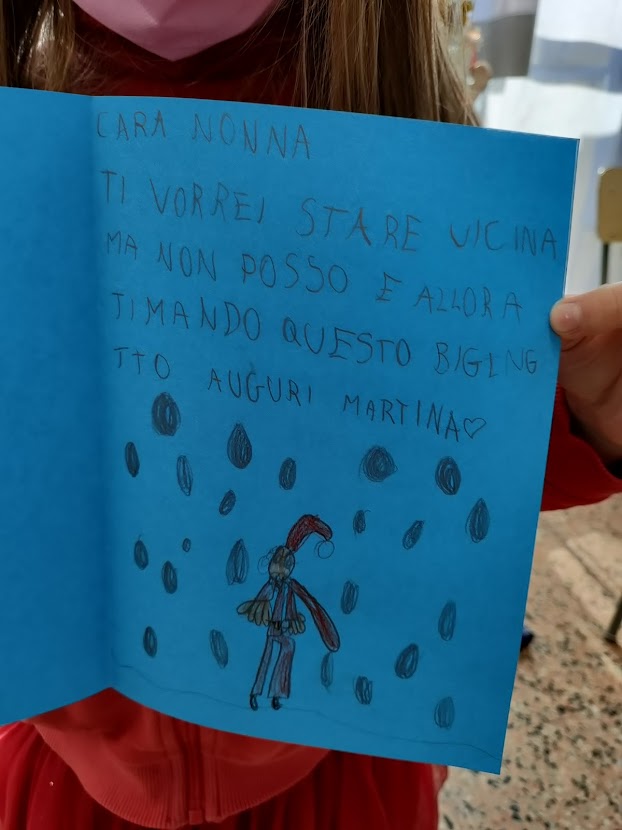 CARA NONNA
TI VORREI STARE VICINA
MA NON POSSO E ALLORA
TIMANDO QUESTO BIGLING
TTO AUGURI MARTINA♡